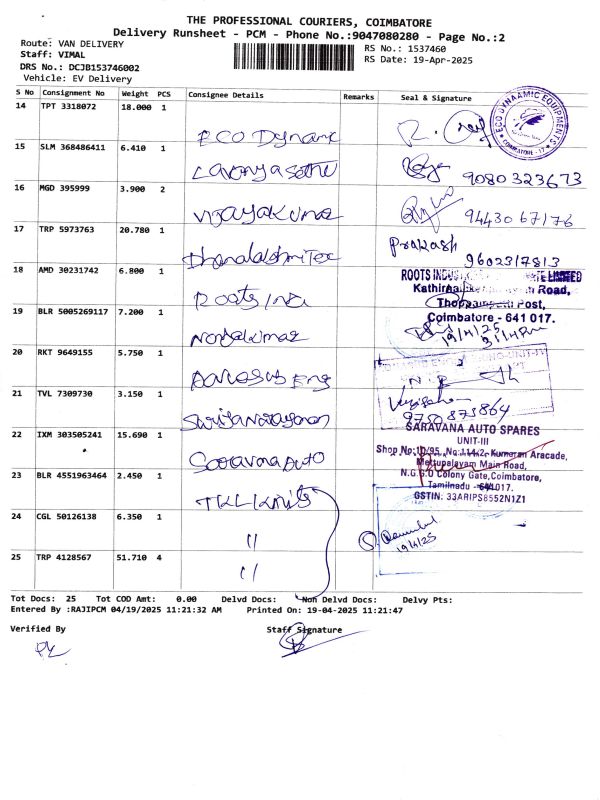 THE PROFESSIONAL COURIERS, COIMBATORE
Delivery Runsheet - PCM - Phone No.:9047080280 - Page No.:2
Route: VAN DELIVERY
Staff: VIMAL
DRS No.: DCJB153746002
Vehicle: EV Delivery
RS No.: 1537460
RS Date: 19-Apr-2025
S No Consignment No Weight PCS Consignee Details Remarks Seal & Signature
14 TPT 3318072 18.000 1 ECO Dynamic
ECO DYNAAMIC EQUIPMENTS
COIMBATORE - 17
15 SLM 368486411 6.410 1 Lavanya Sethu 9080323673
16 MGD 395999 3.900 2 Vijayakumar 9443067176
17 TRP 5973763 20.780 1 Dhanalakshmi Tex Prakash
9602317813
18 AMD 30231742 6.800 1 Roots Ind
ROOTS LIMITED
Road,
Post,
Coimbatore - 641 017.
19/4/25
19 BLR 5005269117 7.200 1
20 RKT 9649155 5.750 1 Eng
21 TVL 7309730 3.150 1 Suriyanarayanan
9750873864
22 IXM 303505241 15.690 1 Saravana Auto
SARAVANA AUTO SPARES
UNIT-III
Shop No:10/95, No:114-2, Kumaran Aracade,
Mettupalayam Main Road,
N.G.G.O Colony Gate, Coimbatore,
Tamilnadu - 641017.
GSTIN: 33ARIPS8552N1Z1
23 BLR 4551963464 2.450 1 TKL Knits
24 CGL 50126138 6.350 1 "
19/4/25
25 TRP 4128567 51.710 4 "
Tot Docs: 25 Tot COD Amt: 0.00 Delvd Docs: Non Delvd Docs: Delvy Pts:
Entered By :RAJIPCM 04/19/2025 11:21:32 AM Printed On: 19-04-2025 11:21:47
Verified By Staff Signature